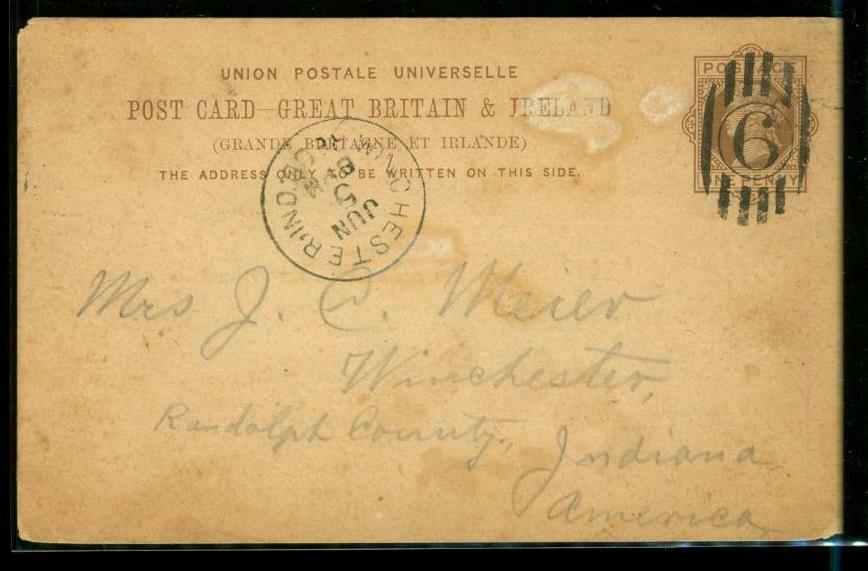 UNION POSTALE UNIVERSELLE
POST CARD—GREAT BRITAIN & IRELAND
(GRANDE BRETAGNE ET IRLANDE)
THE ADDRESS ONLY TO BE WRITTEN ON THIS SIDE.
POSTAGE
ONE PENNY
6
WINCHESTER, IND.
REC'D.
JUN
5
8 AM
Mrs J. C. Meier
Winchester,
Randolph County,
Indiana
America